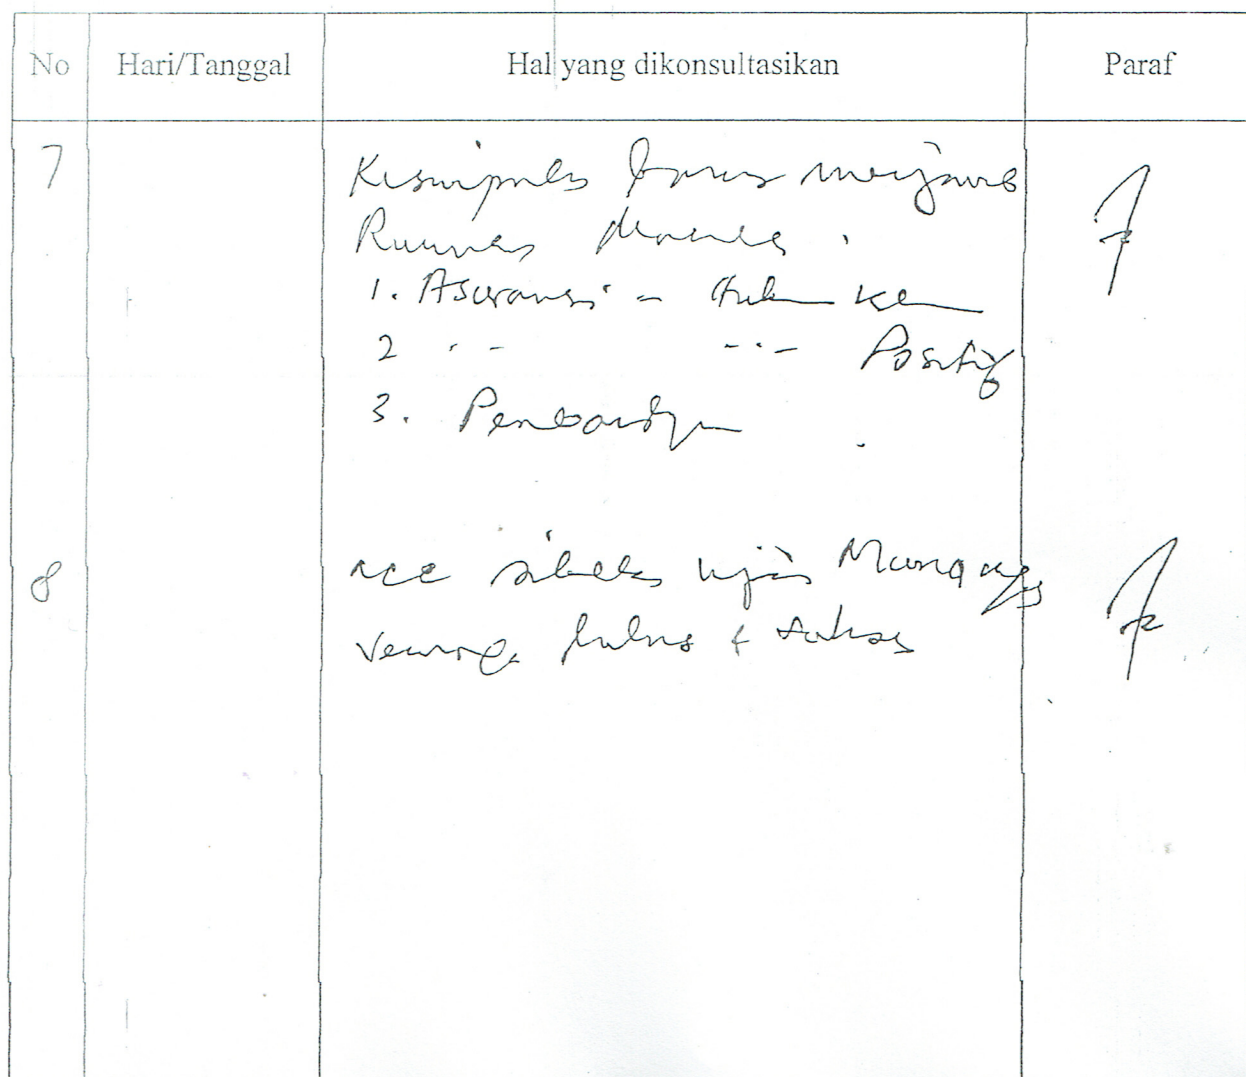 No Hari/Tanggal Hal yang dikonsultasikan Paraf
7 Kesimpulan harus menjawab
Rumusan masalah
1. Asuransi -
2 Positif
3. Perbandingan
8 acc silakan ujian Munaqasy
semoga lulus & sukses